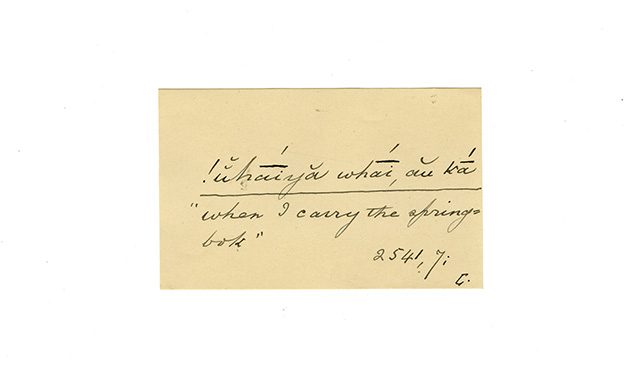 !ŭhāíyă whāí, ău kā́
"when I carry the spring=
bok"
2541, 7;
L.